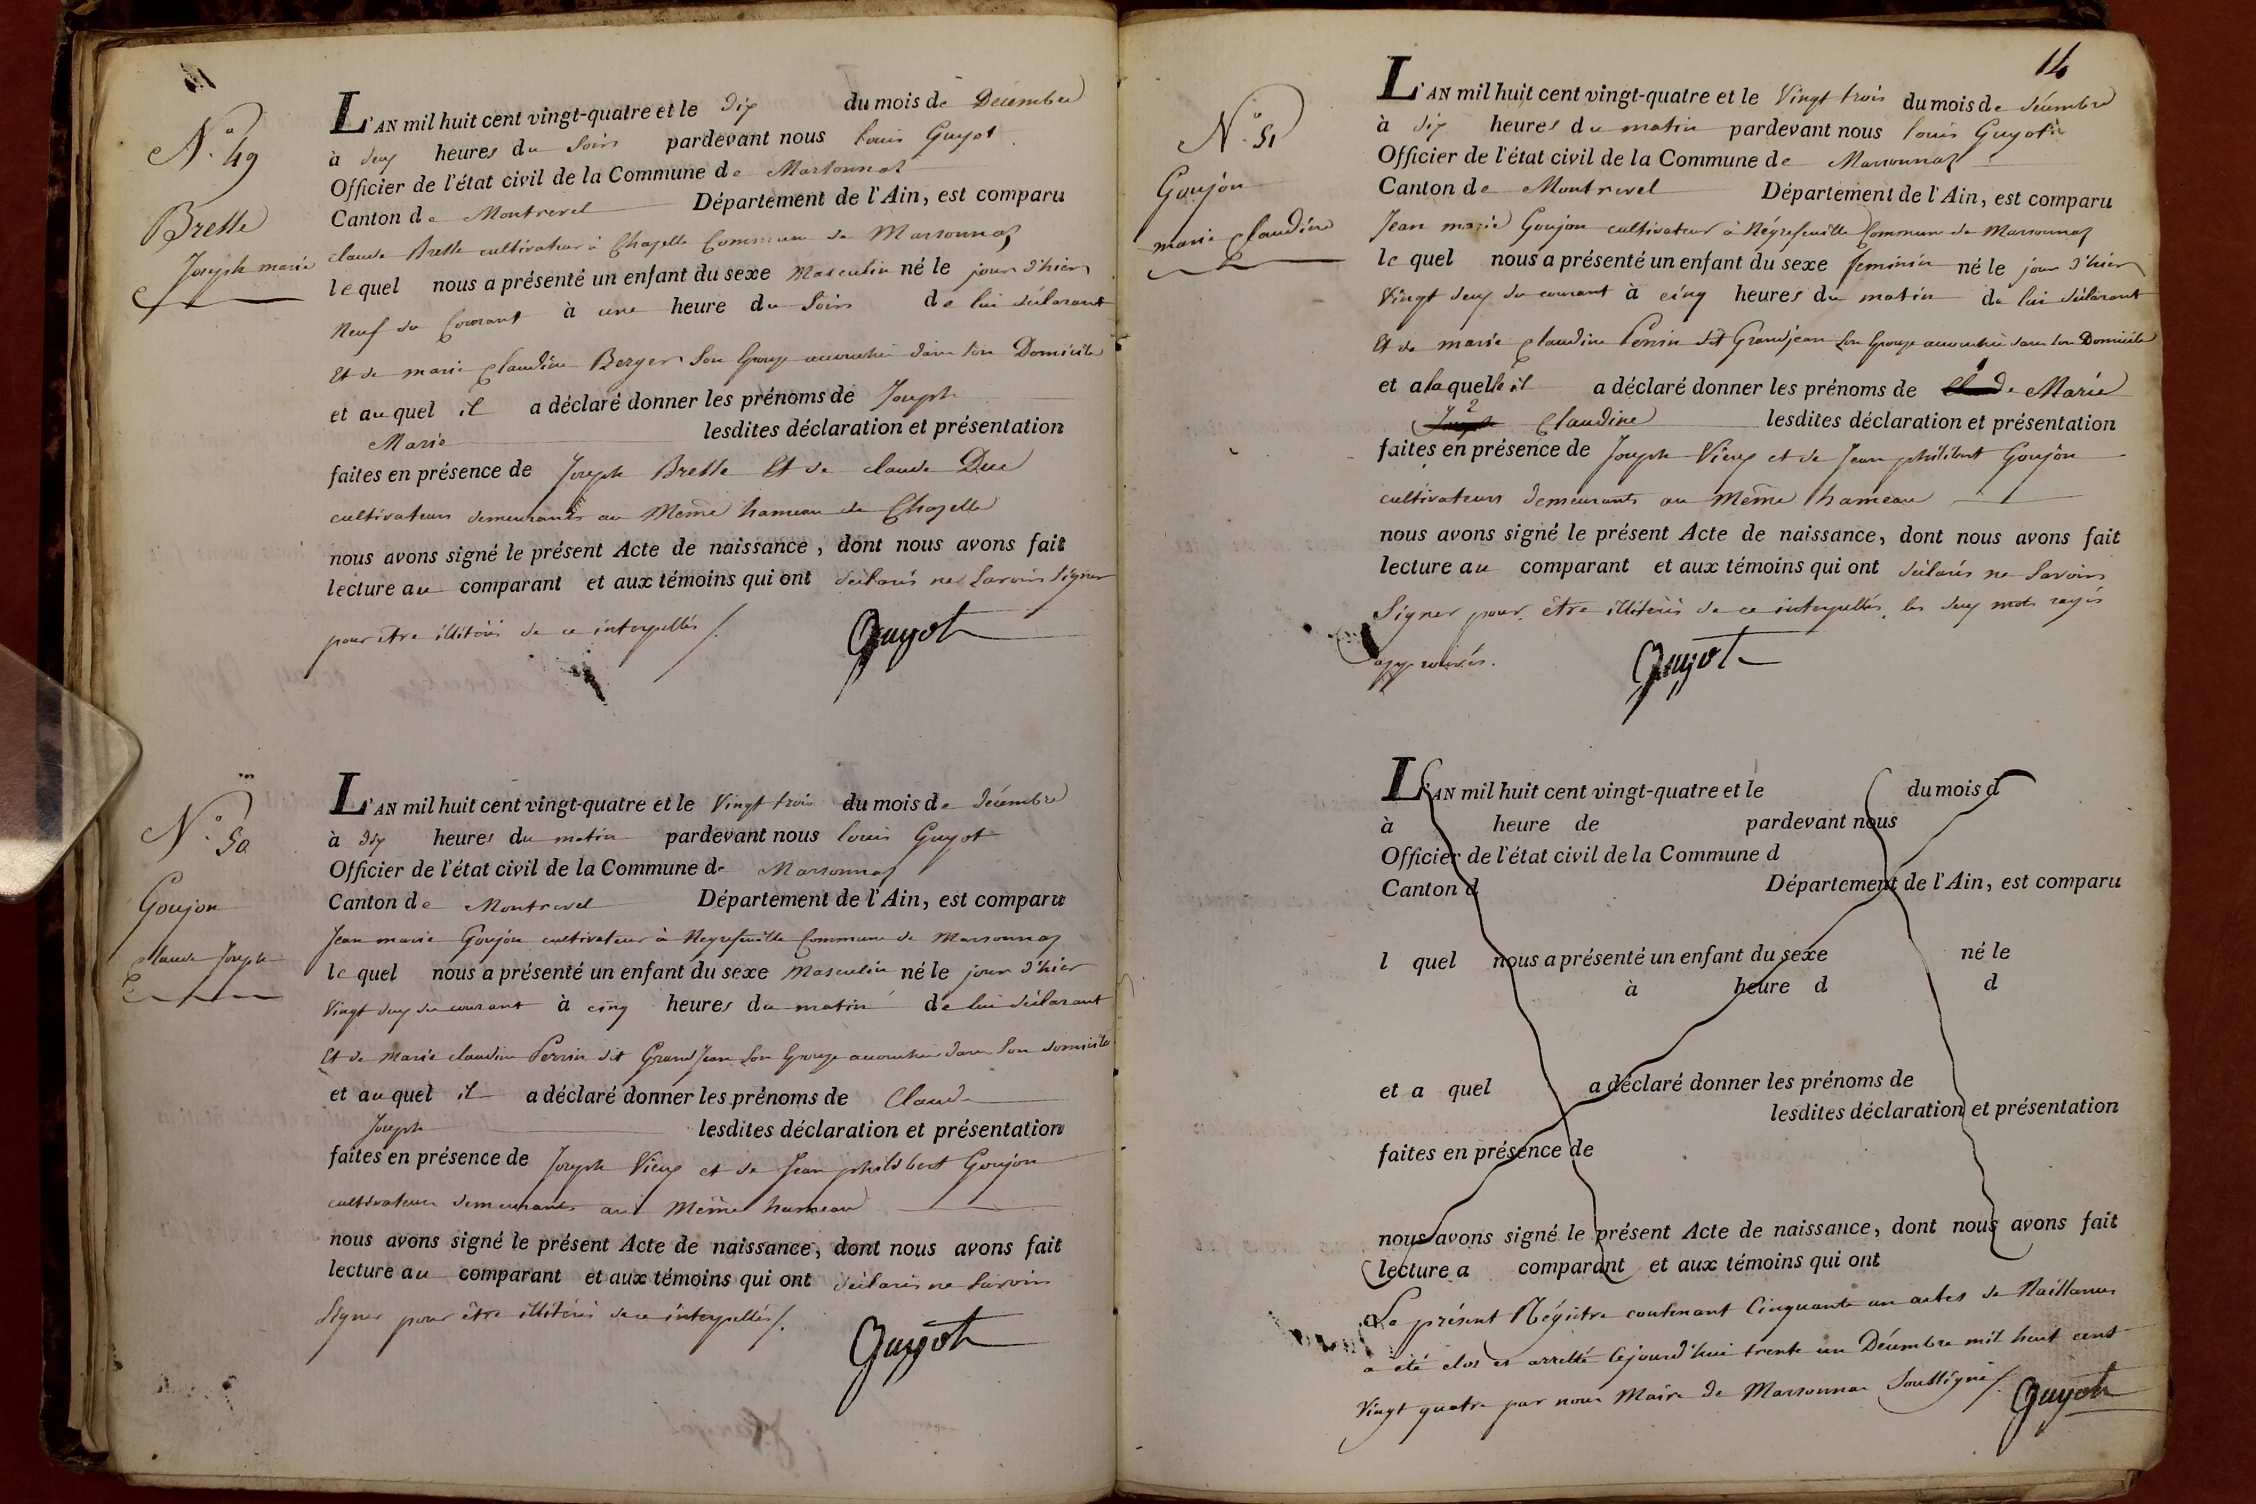 N.° 49
Brette
Joseph marie
L'AN mil huit cent vingt-quatre et le dix du mois de Décembre
à deux heures du Soir pardevant nous Louis Guyot
Officier de l'état civil de la Commune de Marsonnas
Canton de Montrevel Département de l'Ain, est comparu
claude Brette cultivateur à Chapelle Commune de Marsonnas
lequel nous a présenté un enfant du sexe Masculin né le jour d'hier
Neuf du Courant à une heure du Soir de lui déclarant
Et de marie Claudine Berger Son Epouse accouchée dans Son Domicile
et auquel il a déclaré donner les prénoms de Joseph
Marie lesdites déclaration et présentation
faites en présence de Joseph Brette Et de claude Duc
cultivateurs demeurants au Même hameau de Chapelle
nous avons signé le présent Acte de naissance, dont nous avons fait
lecture au comparant et aux témoins qui ont déclarés ne Savoir Signer
pour être illitérés de ce interpellés /.
Guyot
N.° 50
Goujon
Claude Joseph
L'AN mil huit cent vingt-quatre et le Vingt trois du mois de décembre
à dix heures du matin pardevant nous Louis Guyot
Officier de l'état civil de la Commune de Marsonnas
Canton de Montrevel Département de l'Ain, est comparu
Jean marie Goujon cultivateur à Neyrefeuille Commune de Marsonnas
lequel nous a présenté un enfant du sexe Masculin né le jour d'hier
Vingt deux du courant à cinq heures du matin de lui déclarant
Et de Marie claudine Perrin dit GrandJean Son Epouse accouchée dans Son domicile
et auquel il a déclaré donner les prénoms de Claude
Joseph lesdites déclaration et présentation
faites en présence de Joseph Vieux et de Jean philibert Goujon
cultivateurs demeurants au Même hameau
nous avons signé le présent Acte de naissance, dont nous avons fait
lecture au comparant et aux témoins qui ont déclarés ne Savoir
Signer pour être illitérés de ce interpellés /.
Guyot
14
N.° 51
Goujon
marie Claudine
L'AN mil huit cent vingt-quatre et le Vingt trois du mois de décembre
à dix heures du matin pardevant nous Louis Guyot
Officier de l'état civil de la Commune de Marsonnas
Canton de Montrevel Département de l'Ain, est comparu
Jean marie Goujon cultivateur à Néyrefeuille Commune de Marsonnas
lequel nous a présenté un enfant du sexe feminin né le jour d'hier
Vingt deux du courant à cinq heures du matin de lui déclarant
Et de marie Claudine Perrin dit Grandjean Son Epouse accouchée dans Son Domicile
et a laquelle il a déclaré donner les prénoms de Marie
Claudine lesdites déclaration et présentation
faites en présence de Joseph Vieux et de Jean philibert Goujon
cultivateurs demeurants au Même hameau
nous avons signé le présent Acte de naissance, dont nous avons fait
lecture au comparant et aux témoins qui ont déclarés ne Savoir
Signer pour être illitérés de ce interpellés, les deux mots rayés
approuvés.
Guyot
L'AN mil huit cent vingt-quatre et le du mois d
à heure de pardevant nous
Officier de l'état civil de la Commune d
Canton d Département de l'Ain, est comparu
l quel nous a présenté un enfant du sexe né le
à heure d d
et a quel a déclaré donner les prénoms de
lesdites déclaration et présentation
faites en présence de
nous avons signé le présent Acte de naissance, dont nous avons fait
lecture a comparant et aux témoins qui ont
Le présent Régistre contenant Cinquante un actes de Naissances
a été clos et arretté Cejourd'hui trente un Décembre mil huit cent
Vingt quatre par nous Maire de Marsonnas Soussigné /.
Guyot